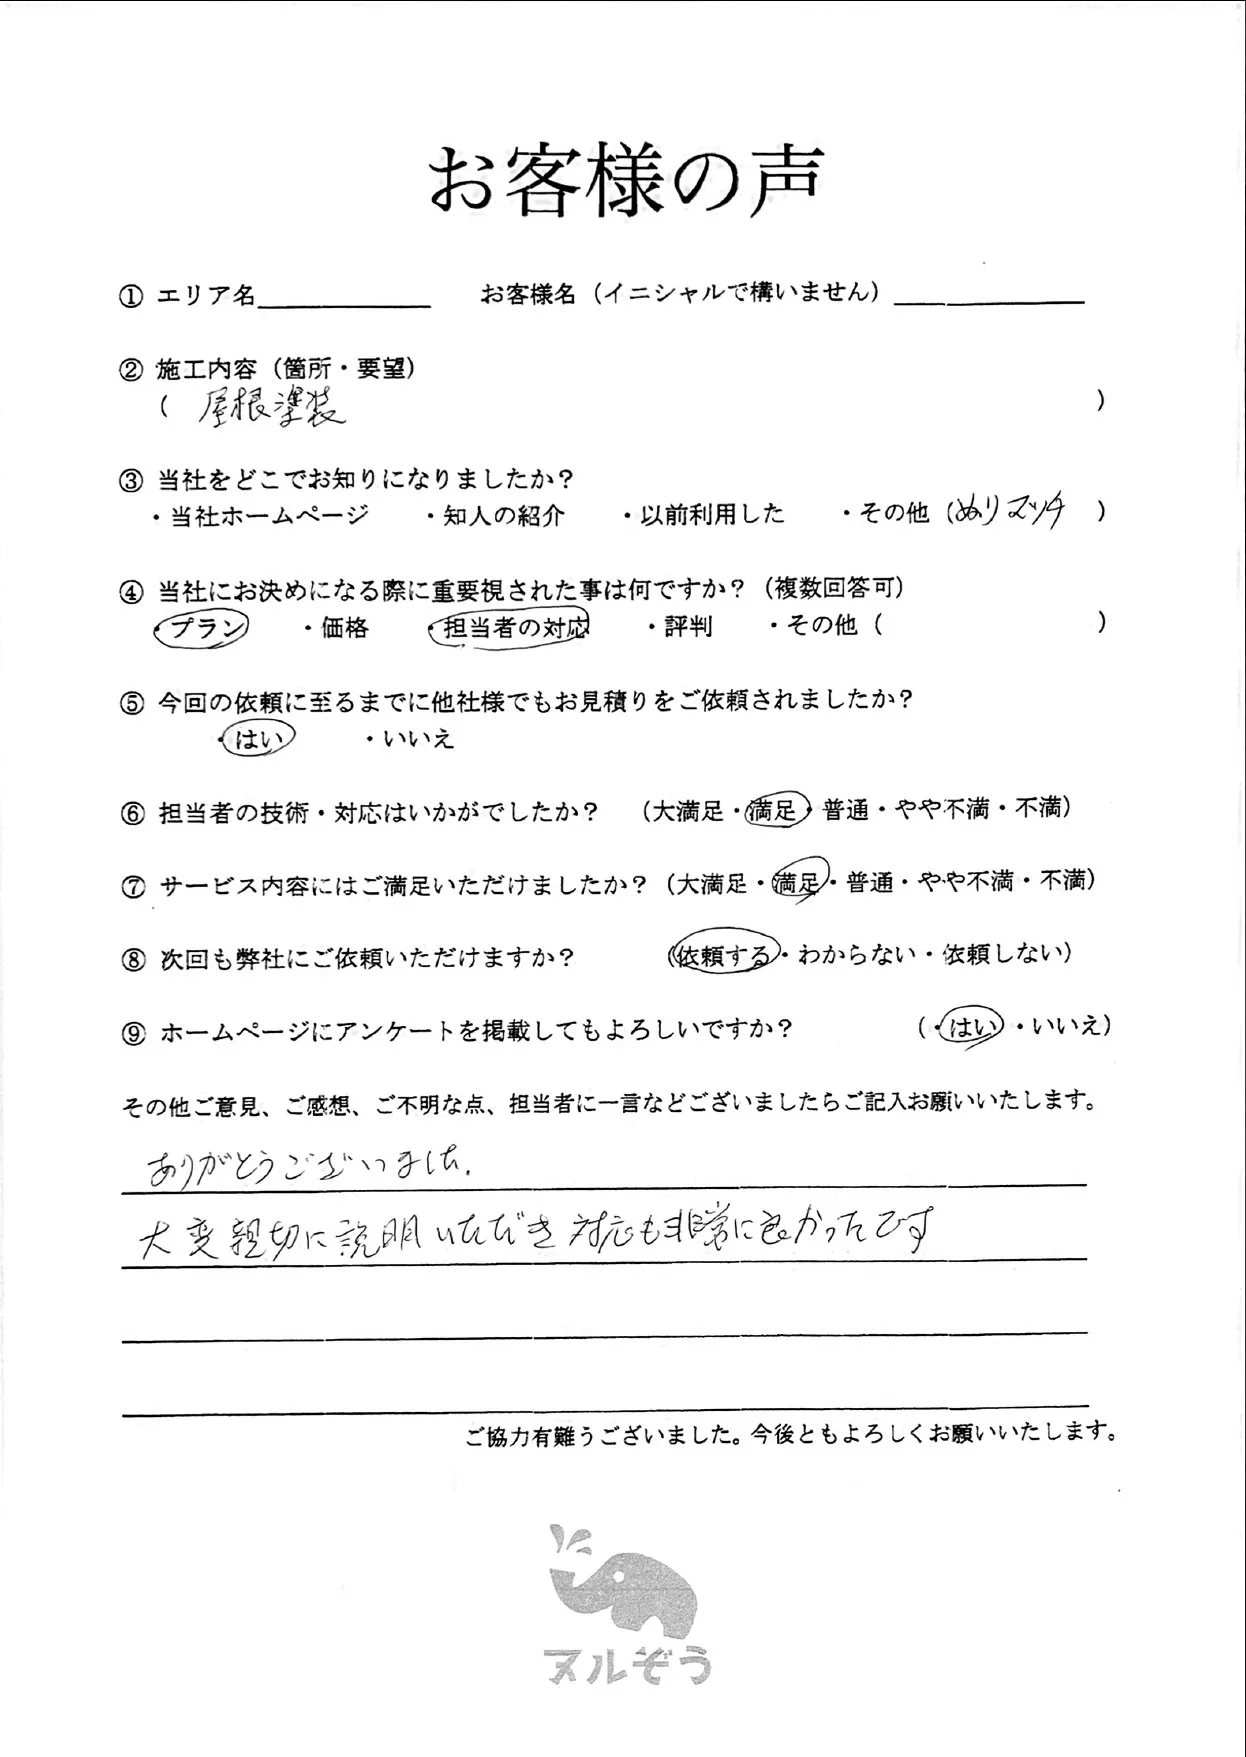 お客様の声
① エリア名 お客様名（イニシャルで構いません）
② 施工内容（箇所・要望）
（ 屋根塗装 ）
③ 当社をどこでお知りになりましたか？
・当社ホームページ ・知人の紹介 ・以前利用した ・その他（ぬりマッチ ）
④ 当社にお決めになる際に重要視された事は何ですか？（複数回答可）
・プラン ・価格 ・担当者の対応 ・評判 ・その他（ ）
⑤ 今回の依頼に至るまでに他社様でもお見積りをご依頼されましたか？
・はい ・いいえ
⑥ 担当者の技術・対応はいかがでしたか？ （大満足・満足・普通・やや不満・不満）
⑦ サービス内容にはご満足いただけましたか？（大満足・満足・普通・やや不満・不満）
⑧ 次回も弊社にご依頼いただけますか？ （依頼する・わからない・依頼しない）
⑨ ホームページにアンケートを掲載してもよろしいですか？ （・はい・いいえ）
その他ご意見、ご感想、ご不明な点、担当者に一言などございましたらご記入お願いいたします。
ありがとうございました.
大変親切に説明いただき対応も非常に良かったです
ご協力有難うございました。今後ともよろしくお願いいたします。
ヌルぞう